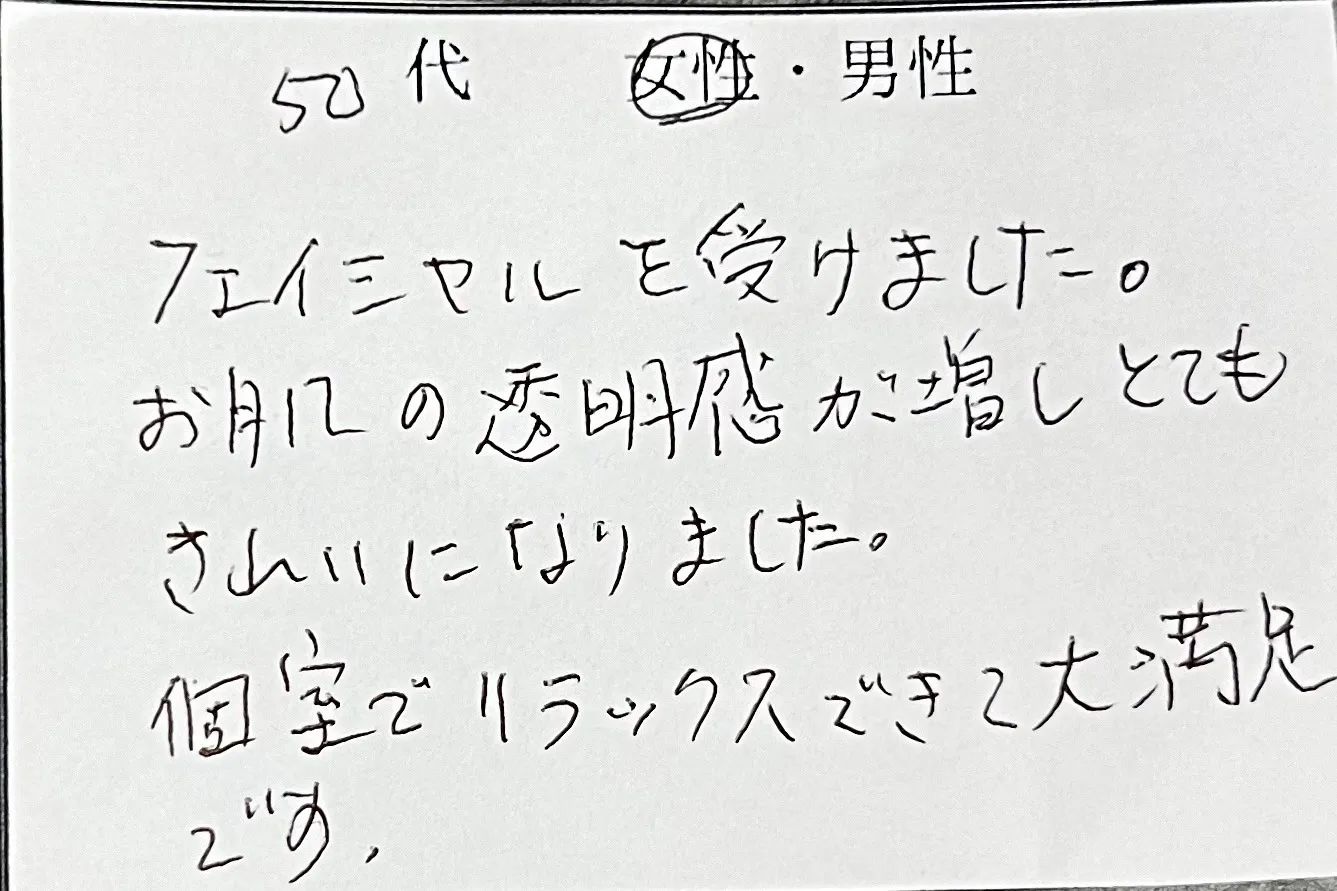 50代 女性・男性
フェイシャルを受けました。
お肌の透明感が増しとても
きれいになりました。
個室でリラックスできて大満足
です.